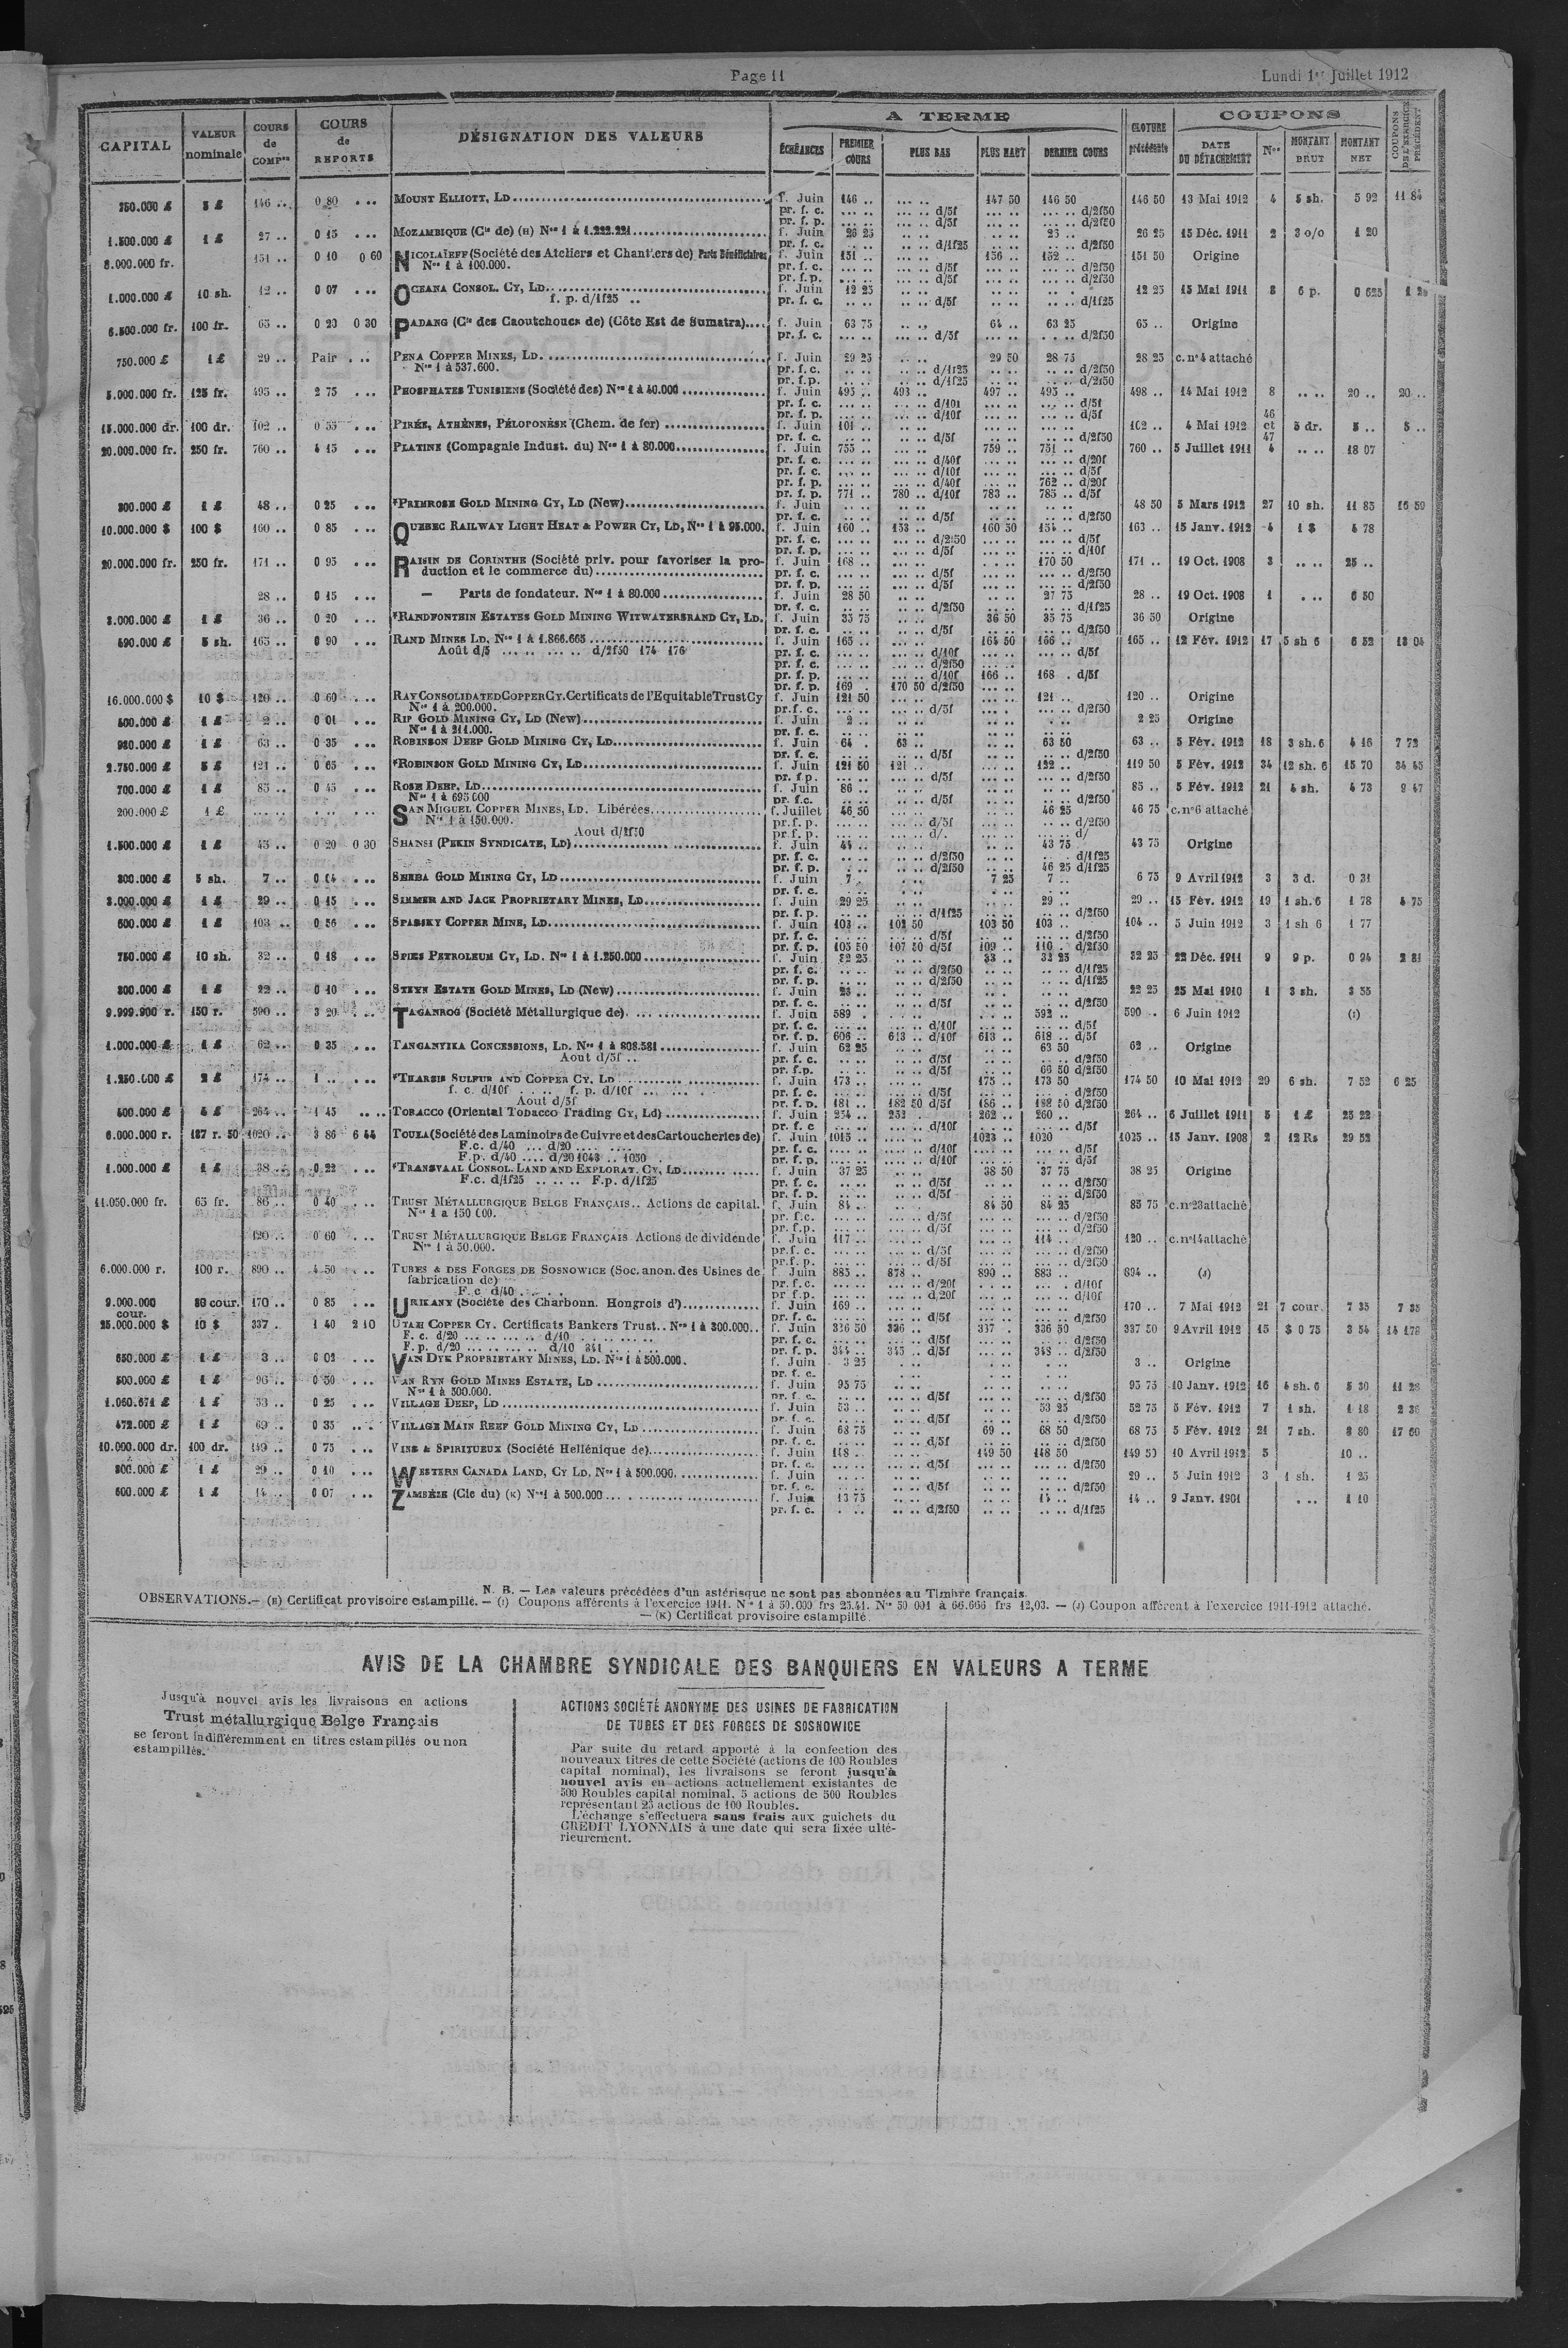 Page 11
Lundi 1er Juillet 1912
CAPITAL
VALEUR nominale
COURS de COMPon
COURS de REPORTS
DÉSIGNATION DES VALEURS
A TERME
ÉCHÉANCES
PREMIER COURS
PLUS BAS
PLUS HAUT
DERNIER COURS
CLOTURE précédente
COUPONS
DATE DU DÉTACHEMENT
Nos
MONTANT BRUT
MONTANT NET
COUPONS DE L'EXERCICE PRÉCÉDENT
5 £ 146 .. 0 80 ... MOUNT ELLIOTT, LD f. Juin 146 .. .. .. 147 50 146 50 146 50 13 Mai 1912 4 5 sh. 5 92 11 84
pr. f. c. d/5f d/2f50
pr. f. p. d/5f d/2f50
1.500.000 £ 1 £ 27 .. 0 15 ... MOZAMBIQUE (Cie de) (H) Nos 1 à 1.222.221 f. Juin 26 25 26 25 15 Déc. 1911 2 3 o/o 1 20
pr. f. c. d/1f25 d/2f50
8.000.000 fr. 151 .. 0 10 0 60 NICOLAÏEFF (Société des Ateliers et Chantiers de) Parts Bénéficiaires f. Juin 151 .. 156 .. 152 .. 151 50 Origine
Nos 1 à 100.000. pr. f. c. d/5f d/2f50
pr. f. p. d/5f d/2f50
1.000.000 £ 10 sh. 12 .. 0 07 ... OCEANA CONSOL. CY, LD f. Juin 12 25 12 25 15 Mai 1911 8 6 p. 0 625
f. p. d/1f25 .. pr. f. c. d/5f d/1f25
6.500.000 fr. 100 fr. 65 .. 0 20 0 30 PADANG (Cie des Caoutchoucs de) (Côte Est de Sumatra) f. Juin 63 75 64 .. 63 25 65 .. Origine
pr. f. c. d/5f d/2f50
750.000 £ 1 £ 29 .. Pair ... PENA COPPER MINES, LD. f. Juin 29 25 29 50 28 75 28 25 c. n°4 attaché
Nos 1 à 537.600. pr. f. c. d/1f25 d/2f50
pr. f. p. d/1f25 d/2f50
5.000.000 fr. 125 fr. 495 .. 2 75 ... PHOSPHATES TUNISIENS (Société des) Nos 1 à 40.000 f. Juin 495 .. 493 .. 497 .. 495 .. 498 .. 14 Mai 1912 8 .. .. 20 .. 20 ..
pr. f. c. d/10f d/5f
pr. f. p. d/10f d/5f
15.000.000 dr. 100 dr. 102 .. 0 55 ... PIRÉE, ATHÈNES, PÉLOPONÈSE (Chem. de fer) f. Juin 101 .. 102 .. 4 Mai 1912 46 et 47 5 dr. 5 .. 5 ..
pr. f. c. d/5f d/2f50
20.000.000 fr. 250 fr. 760 .. 4 15 ... PLATINE (Compagnie Indust. du) Nos 1 à 80.000 f. Juin 755 .. 759 .. 751 .. 760 .. 5 Juillet 1911 4 .. .. 18 07
pr. f. c. d/40f d/20f
pr. f. c. d/10f d/5f
pr. f. p. d/40f 762 .. d/20f
pr. f. p. 771 .. 780 .. d/10f 783 .. 785 .. d/5f
300.000 £ 1 £ 48 .. 0 25 ... *PRIMROSE GOLD MINING CY, LD (New) f. Juin 48 50 5 Mars 1912 27 10 sh. 11 85 16 59
pr. f. c. d/5f d/2f50
10.000.000 $ 100 $ 160 .. 0 85 ... QUEBEC RAILWAY LIGHT HEAT & POWER CY, LD, Nos 1 à 95.000. f. Juin 160 .. 153 .. 160 50 154 .. 163 .. 15 Janv. 1912 4 1 $ 4 78
pr. f. c. d/2f50 d/5f
pr. f. p. d/5f d/10f
20.000.000 fr. 250 fr. 171 .. 0 95 ... RAISIN DE CORINTHE (Société priv. pour favoriser la pro- f. Juin 168 .. 170 50 171 .. 19 Oct. 1908 3 .. .. 25 ..
duction et le commerce du) pr. f. c. d/5f d/2f50
pr. f. p. d/5f d/2f50
28 .. 0 15 ... — Parts de fondateur. Nos 1 à 80.000 f. Juin 28 50 27 75 28 .. 19 Oct. 1908 1 ... 6 50
pr. f. c. d/2f50 d/1f25
3.000.000 £ 1 £ 36 .. 0 20 ... *RANDFONTEIN ESTATES GOLD MINING WITWATERSRAND CY, LD. f. Juin 35 75 36 50 35 75 36 50 Origine
pr. f. c. d/5f d/2f50
490.000 £ 5 sh. 165 .. 0 90 ... RAND MINES LD, Nos 1 à 1.866.665 f. Juin 165 .. 164 50 166 .. 165 .. 12 Fév. 1912 17 5 sh 6 6 52 13 04
Août d/5 .... .. .... .. d/2f50 174 176 pr. f. c. d/10f d/5f
pr. f. c. d/2f50
pr. f. p. d/10f 166 .. 168 . d/5f
pr. f. p. 169 . 170 50 d/2f50
16.000.000 $ 10 $ 120 .. 0 60 ... RAY CONSOLIDATED COPPER CY. Certificats de l'Equitable Trust Cy f. Juin 121 50 121 .. 120 .. Origine
Nos 1 à 200.000. pr. f. c. d/5f d/2f50
500.000 £ 1 £ 2 .. 0 01 ... RIP GOLD MINING CY, LD (New) f. Juin 2 .. 2 25 Origine
Nos 1 à 211.000. pr. f. c.
980.000 £ 1 £ 63 .. 0 35 ... ROBINSON DEEP GOLD MINING CY, LD f. Juin 64 . 63 .. 63 50 63 .. 5 Fév. 1912 18 3 sh. 6 4 16 7 72
pr. f. c. d/5f d/2f50
2.750.000 £ 5 £ 121 .. 0 65 ... *ROBINSON GOLD MINING CY, LD f. Juin 121 50 121 .. 122 .. 119 50 5 Fév. 1912 34 12 sh. 6 15 70 34 45
pr. f. p. d/5f d/2f50
700.000 £ 1 £ 85 .. 0 45 ... ROSE DEEP, LD f. Juin 86 .. 85 .. 5 Fév. 1912 21 4 sh. 4 73 9 47
Nos 1 à 695.000 pr. f. c. d/5f d/2f50
200.000 £ 1 £ SAN MIGUEL COPPER MINES, LD. Libérées f. Juillet 46 50 46 25 46 75 c. n°6 attaché
Nos 1 à 150.000. pr. f. p. d/5f d/2f50
Aout d/2f50 pr f. p. d/. d/
1.500.000 £ 1 £ 45 .. 0 20 0 30 SHANSI (PEKIN SYNDICATE, LD) f. Juin 44 .. 43 75 43 75 Origine
pr. f. c. d/2f50 d/1f25
pr. f. p. d/2f50 46 25 d/1f25
300.000 £ 5 sh. 7 .. 0 04 ... SHEBA GOLD MINING CY, LD f. Juin 7 . 7 25 7 .. 6 75 9 Avril 1912 3 3 d. 0 31
pr. f. c.
3.000.000 £ 1 £ 29 .. 0 15 ... SIMMER AND JACK PROPRIETARY MINES, LD f. Juin 29 25 29 .. 29 .. 15 Fév. 1912 19 1 sh. 6 1 78 4 75
pr. f. p. d/1f25 d/2f50
600.000 £ 1 £ 103 .. 0 56 ... SPASSKY COPPER MINE, LD f. Juin 103 .. 102 50 103 50 103 .. 104 .. 5 Juin 1912 3 1 sh 6 1 77
pr. f. c. d/5f d/2f50
pr. f. p. 105 50 107 50 d/5f 109 .. 110 . d/2f50
750.000 £ 10 sh. 32 .. 0 18 ... SPIES PETROLEUM CY, LD. Nos 1 à 1.250.000 f. Juin 32 25 33 .. 32 25 32 25 22 Déc. 1911 9 9 p. 0 94 2 81
pr. f. c. d/2f50 d/1f25
pr. f. p. d/2f50 d/1f25
300.000 £ 1 £ 22 .. 0 10 ... STEYN ESTATE GOLD MINES, LD (New) f. Juin 23 .. 22 25 25 Mai 1910 1 3 sh. 3 55
pr. f. c. d/5f d/2f50
9.999.900 r. 150 r. 590 .. 3 20 ... TAGANROG (Société Métallurgique de) f. Juin 589 . 592 .. 590 .. 6 Juin 1912 (I)
pr. f. c. d/10f d/5f
pr. f. p. 606 .. 613 .. d/10f 613 .. 618 .. d/5f
1.000.000 £ 1 £ 62 .. 0 35 ... TANGANYIKA CONCESSIONS, LD. Nos 1 à 808.581 f. Juin 62 25 63 50 62 .. Origine
Aout d/5f .. pr. f. c. d/5f d/2f50
pr. f.p. d/5f 66 50 d/2f50
1.250.000 £ 2 £ 174 .. 1 .. ... *THARSIS SULFUR AND COPPER CY, LD f. Juin 173 .. 175 .. 173 50 174 50 10 Mai 1912 29 6 sh. 7 52 6 25
f. c. d/10f .. .. f. p. d/10f pr. f. c. d/5f d/2f50
Août d/5f pr. f. p. 181 .. 182 50 d/5f 186 .. 188 50 d/2f50
500.000 £ 264 .. 1 45 .. .. TOBACCO (Oriental Tobacco Trading Cy, Ld) f. Juin 254 .. 253 .. 262 .. 260 .. 264 .. 6 Juillet 1911 5 1 £ 25 22
pr. f. c d/10f d/5f
6.000.000 r. 187 r. 50 1020 .. 3 86 6 44 TOULA (Société des Laminoirs de Cuivre et des Cartoucheries de) f. Juin 1015 .. 1023 .. 1020 1025 .. 15 Janv. 1908 2 12 Rs 29 52
F.c. d/40 .... d/20 .... .... pr. f. c. d/10f d/5f
F.p. d/40 .... d/20 1043 .. 1050 . pr. f. p. d/10f d/5f
1.000.000 £ 1 £ 38 .. 0 22 ... *TRANSVAAL CONSOL. LAND AND EXPLORAT. CY, LD f. Juin 37 25 38 50 37 75 38 25 Origine
F.c. d/1f25 .. .. .. F.p. d/1f25 pr. f. c. d/5f d/2f50
pr. f. p. d/5f d/2f50
11.050.000 fr. 65 fr. 86 .. 0 40 ... TRUST MÉTALLURGIQUE BELGE FRANÇAIS.. Actions de capital. f. Juin 84 .. 84 50 84 25 85 75 c. n°23 attaché
Nos 1 a 150.000. pr. f.c. d/5f d/2f50
pr. f.p. d/5f d/2f50
120 .. 0 60 ... TRUST MÉTALLURGIQUE BELGE FRANÇAIS Actions de dividende f. Juin 117 .. 114 .. 120 .. c. n°14 attaché
Nos 1 à 50.000. pr. f. c. d/5f d/2f50
pr. f. p. d/5f d/2f50
6.000.000 r. 100 r. 890 .. 4 50 ... TUBES & DES FORGES DE SOSNOWICE (Soc. anon. des Usines de f. Juin 885 .. 878 .. 890 .. 883 .. 894 .. (J)
fabrication de) pr. f. c. d/20f d/10f
F. c d/40 pr f. p. d,20f d/10f
9.000.000 cour. 80 cour. 170 .. 0 85 ... URIKANY (Société des Charbonn. Hongrois d') f. Juin 169 .. 170 .. 7 Mai 1912 21 7 cour. 7 35 7 35
pr. f. c. d/5f d/2f50
25.000.000 $ 10 $ 337 . 1 40 2 10 UTAH COPPER CY. Certificats Bankers Trust.. Nos 1 à 300.000.. f. Juin 336 50 336 .. 337 . 336 50 337 50 9 Avril 1912 15 $ 0 75 3 54
F. c. d/20 ... .. ... .. d/10 pr. f. c. d/5f d/2f50
F. p. d/20 ... .. ... .. d/10 341 pr. f. p. 344 .. 345 .. d/5f 348 .. d/2f50
650.000 £ 1 £ 3 .. 0 02 ... VAN DYK PROPRIETARY MINES, LD. Nos 1 à 500.000. f. Juin 3 25 3 .. Origine
pr. f. c.
500.000 £ 1 £ 96 .. 0 50 ... VAN RYN GOLD MINES ESTATE, LD f. Juin 95 75 95 75 10 Janv. 1912 16 4 sh. 6 5 30 11 28
Nos 1 à 500.000. pr. f. c. d/5f d/2f50
1.060.671 £ 1 £ 53 .. 0 25 ... VILLAGE DEEP, LD f. Juin 53 .. 53 25 52 75 5 Fév. 1912 7 1 sh. 1 18 2 36
pr. f. c. d/5f d/2f50
472.000 £ 1 £ 69 .. 0 35 ... VILLAGE MAIN REEF GOLD MINING CY, LD f. Juin 68 75 69 .. 68 50 68 75 5 Fév. 1912 21 7 sh. 8 80 17 60
pr. f. c. d/5f d/2f50
10.000.000 dr. 100 dr. 149 .. 0 75 ... VINS & SPIRITUEUX (Société Hellénique de) f. Juin 148 .. 149 50 148 50 149 50 10 Avril 1912 5 10 ..
pr. f. c. d/5f d/2f50
300.000 £ 1 £ 29 .. 0 10 ... WESTERN CANADA LAND, CY LD, Nos 1 à 500.000. f. Juin 29 .. 5 Juin 1912 3 1 sh. 1 25
pr. f. c. d/5f d/2f50
600.000 £ 1 £ 14 .. 0 07 ... ZAMBÈZE (Cie du) (K) Nos 1 à 500.000 f. Juin 13 75 14 .. 14 .. 9 Janv. 1901 ... 1 10
pr. f. c. d/2f50 d/1f25
N. B. — Les valeurs précédées d'un astérisque ne sont pas abonnées au Timbre français.
OBSERVATIONS.— (H) Certificat provisoire estampillé. — (I) Coupons afférents à l'exercice 1911. Nos 1 à 50.000 frs 25.41. Nos 50 001 à 66.666 frs 12,03. — (J) Coupon afférent à l'exercice 1911-1912 attaché.
— (K) Certificat provisoire estampillé.
AVIS DE LA CHAMBRE SYNDICALE DES BANQUIERS EN VALEURS A TERME
Jusqu'à nouvel avis les livraisons en actions
Trust métallurgique Belge Français
se feront indifféremment en titres estampillés ou non
estampillés.
ACTIONS SOCIÉTÉ ANONYME DES USINES DE FABRICATION
DE TUBES ET DES FORGES DE SOSNOWICE
Par suite du retard apporté à la confection des
nouveaux titres de cette Société (actions de 100 Roubles
capital nominal), les livraisons se feront jusqu'à
nouvel avis en actions actuellement existantes de
500 Roubles capital nominal. 5 actions de 500 Roubles
représentant 25 actions de 100 Roubles.
L'échange s'effectuera sans frais aux guichets du
CREDIT LYONNAIS à une date qui sera fixée ulté-
rieurement.